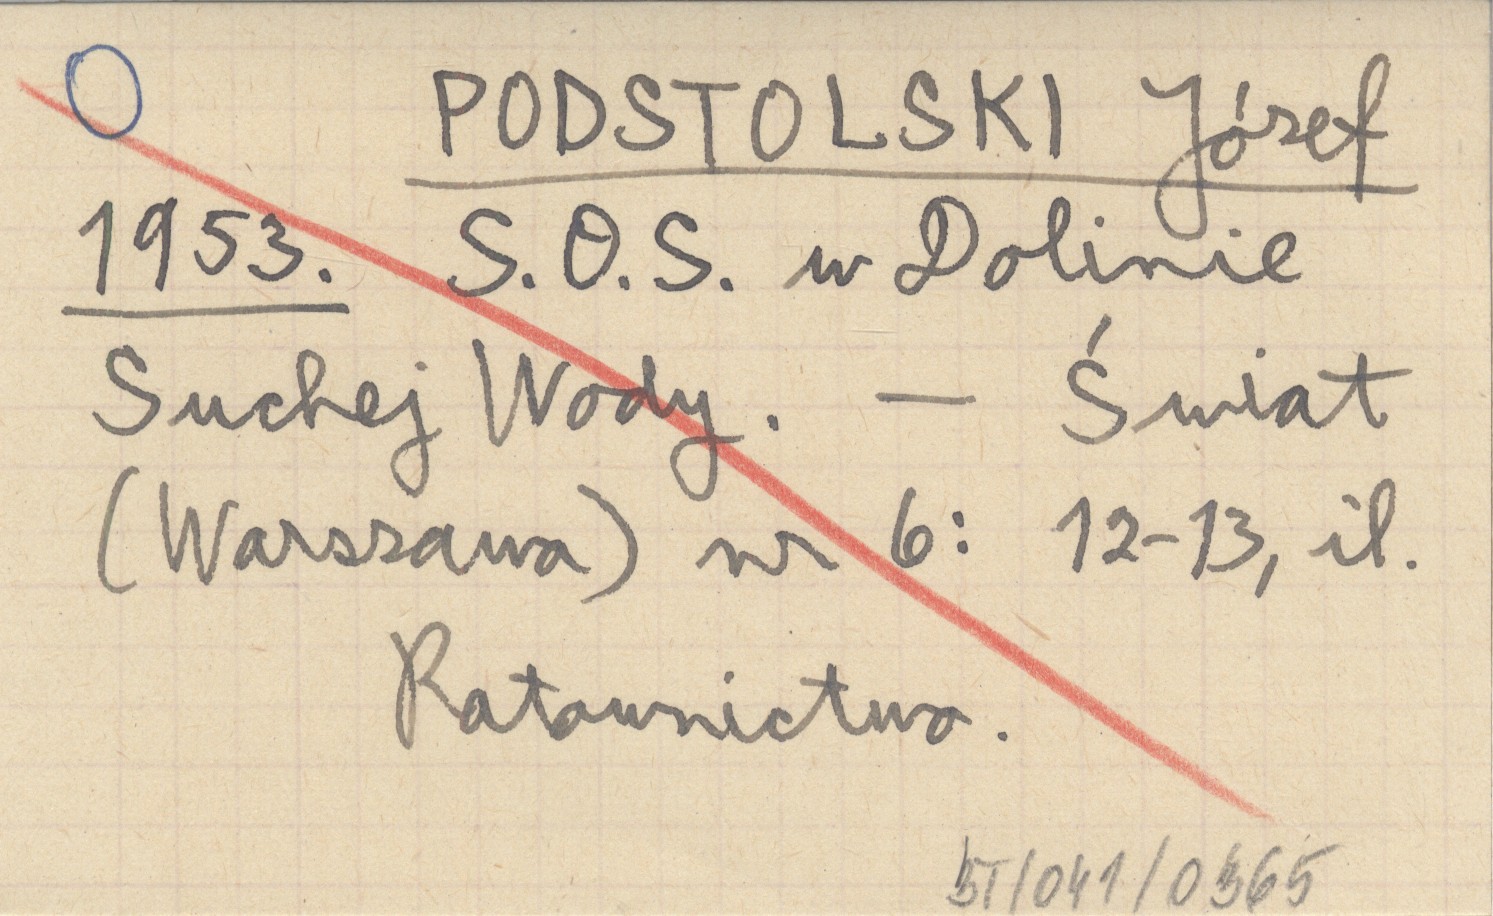 PODSTOLSKI Józef
1953. S.O.S. w Dolinie
Suchej Wody. — Świat
(Warszawa) nr 6: 12-13, il.
Ratownictwo.
5T/041/0365